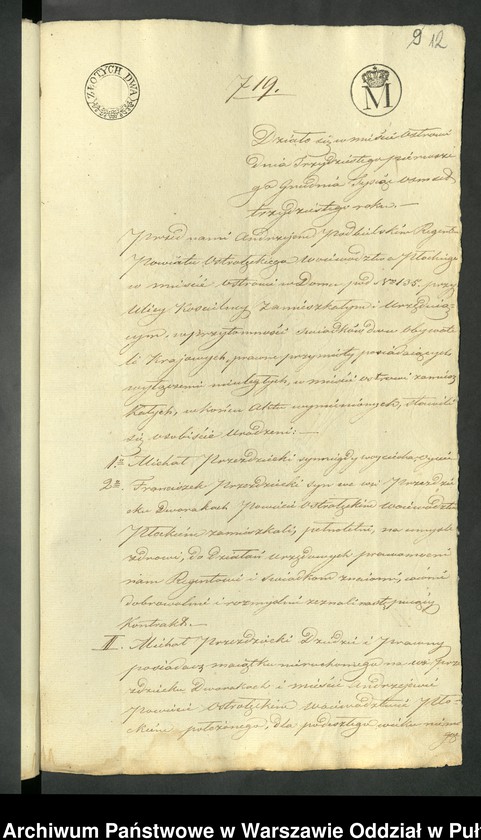 9 12
ZŁOTYCH DWA
719.
M
Działo się w mieście Ostrowi
dnia Trzydziestego pierwsze
go Grudnia Tysiąc Osmset
trzydziestego roku. —
Przed nami Andrzejem Podbielskim Regentem
Powiatu Ostrołęckiego Województwa Płockiego
w mieście Ostrowi w Domu pod Nro 135. przy
Ulicy Kościelney Zamieszkałym i Urzędują-
cym, w przytomności świadków dwu Obywate
li Kraiowych, prawne przymioty posiadaiących,
wyłączeniu nieuległych, w mieście Ostrowi zamiesz
kałych, w końcu Aktu wymienionych, stawili
się osobiście Urodzeni: —
1. Michał Przezdziecki syn niegdy Woyciecha, oycie
2. Franciszek Przezdziecki syn we wsi Przezdzie
cku Dworakach Powiecie Ostrołęckim Województwie
Płockim zamieszkali, pełnoletni, na umyśle
zdrowi, do Działań Urzędowych prawomocni
nam Regentowi i świadkom znaiomi, iawnie
dobrowolnie i rozmyślnie zeznali następuiący
Kontrakt. —
II. Michał Przezdziecki Dziedzic i Prawny
posiadacz maiątku nieruchomego na wsi Prze
zdziecku Dworakach i mieście Andrzejewie
Powiecie Ostrołęckim Województwie Pło-
ckiem położonego, dla podeszłego wieku niemo
gąc
Archiwum Państwowe w Warszawie Oddział w Puł